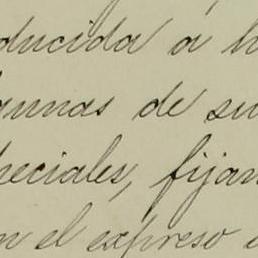 ducida á h
gunas de su
peciales, fijan
n el expreso